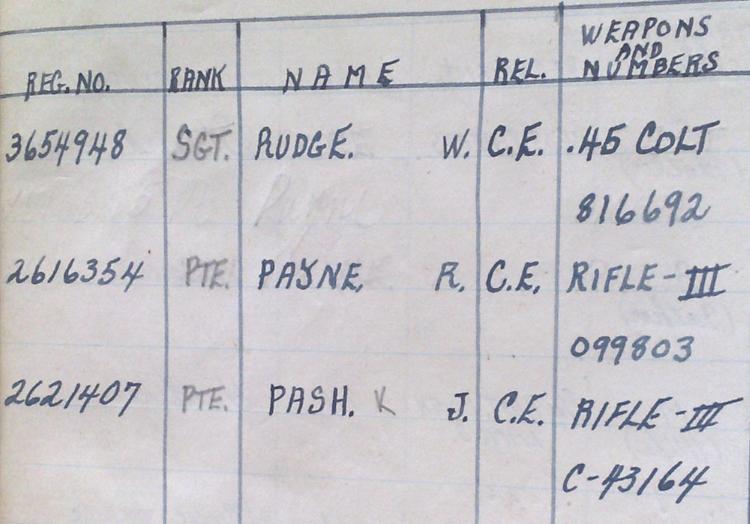 REG. NO. RANK NAME REL. WEAPONS AND NUMBERS
3654948 SGT. RUDGE. W. C.E. .45 COLT
816692
2616354 PTE. PAYNE, R. C.E. RIFLE-III
099803
2621407 PTE. PASH. K J. C.E. RIFLE-III
C-43164